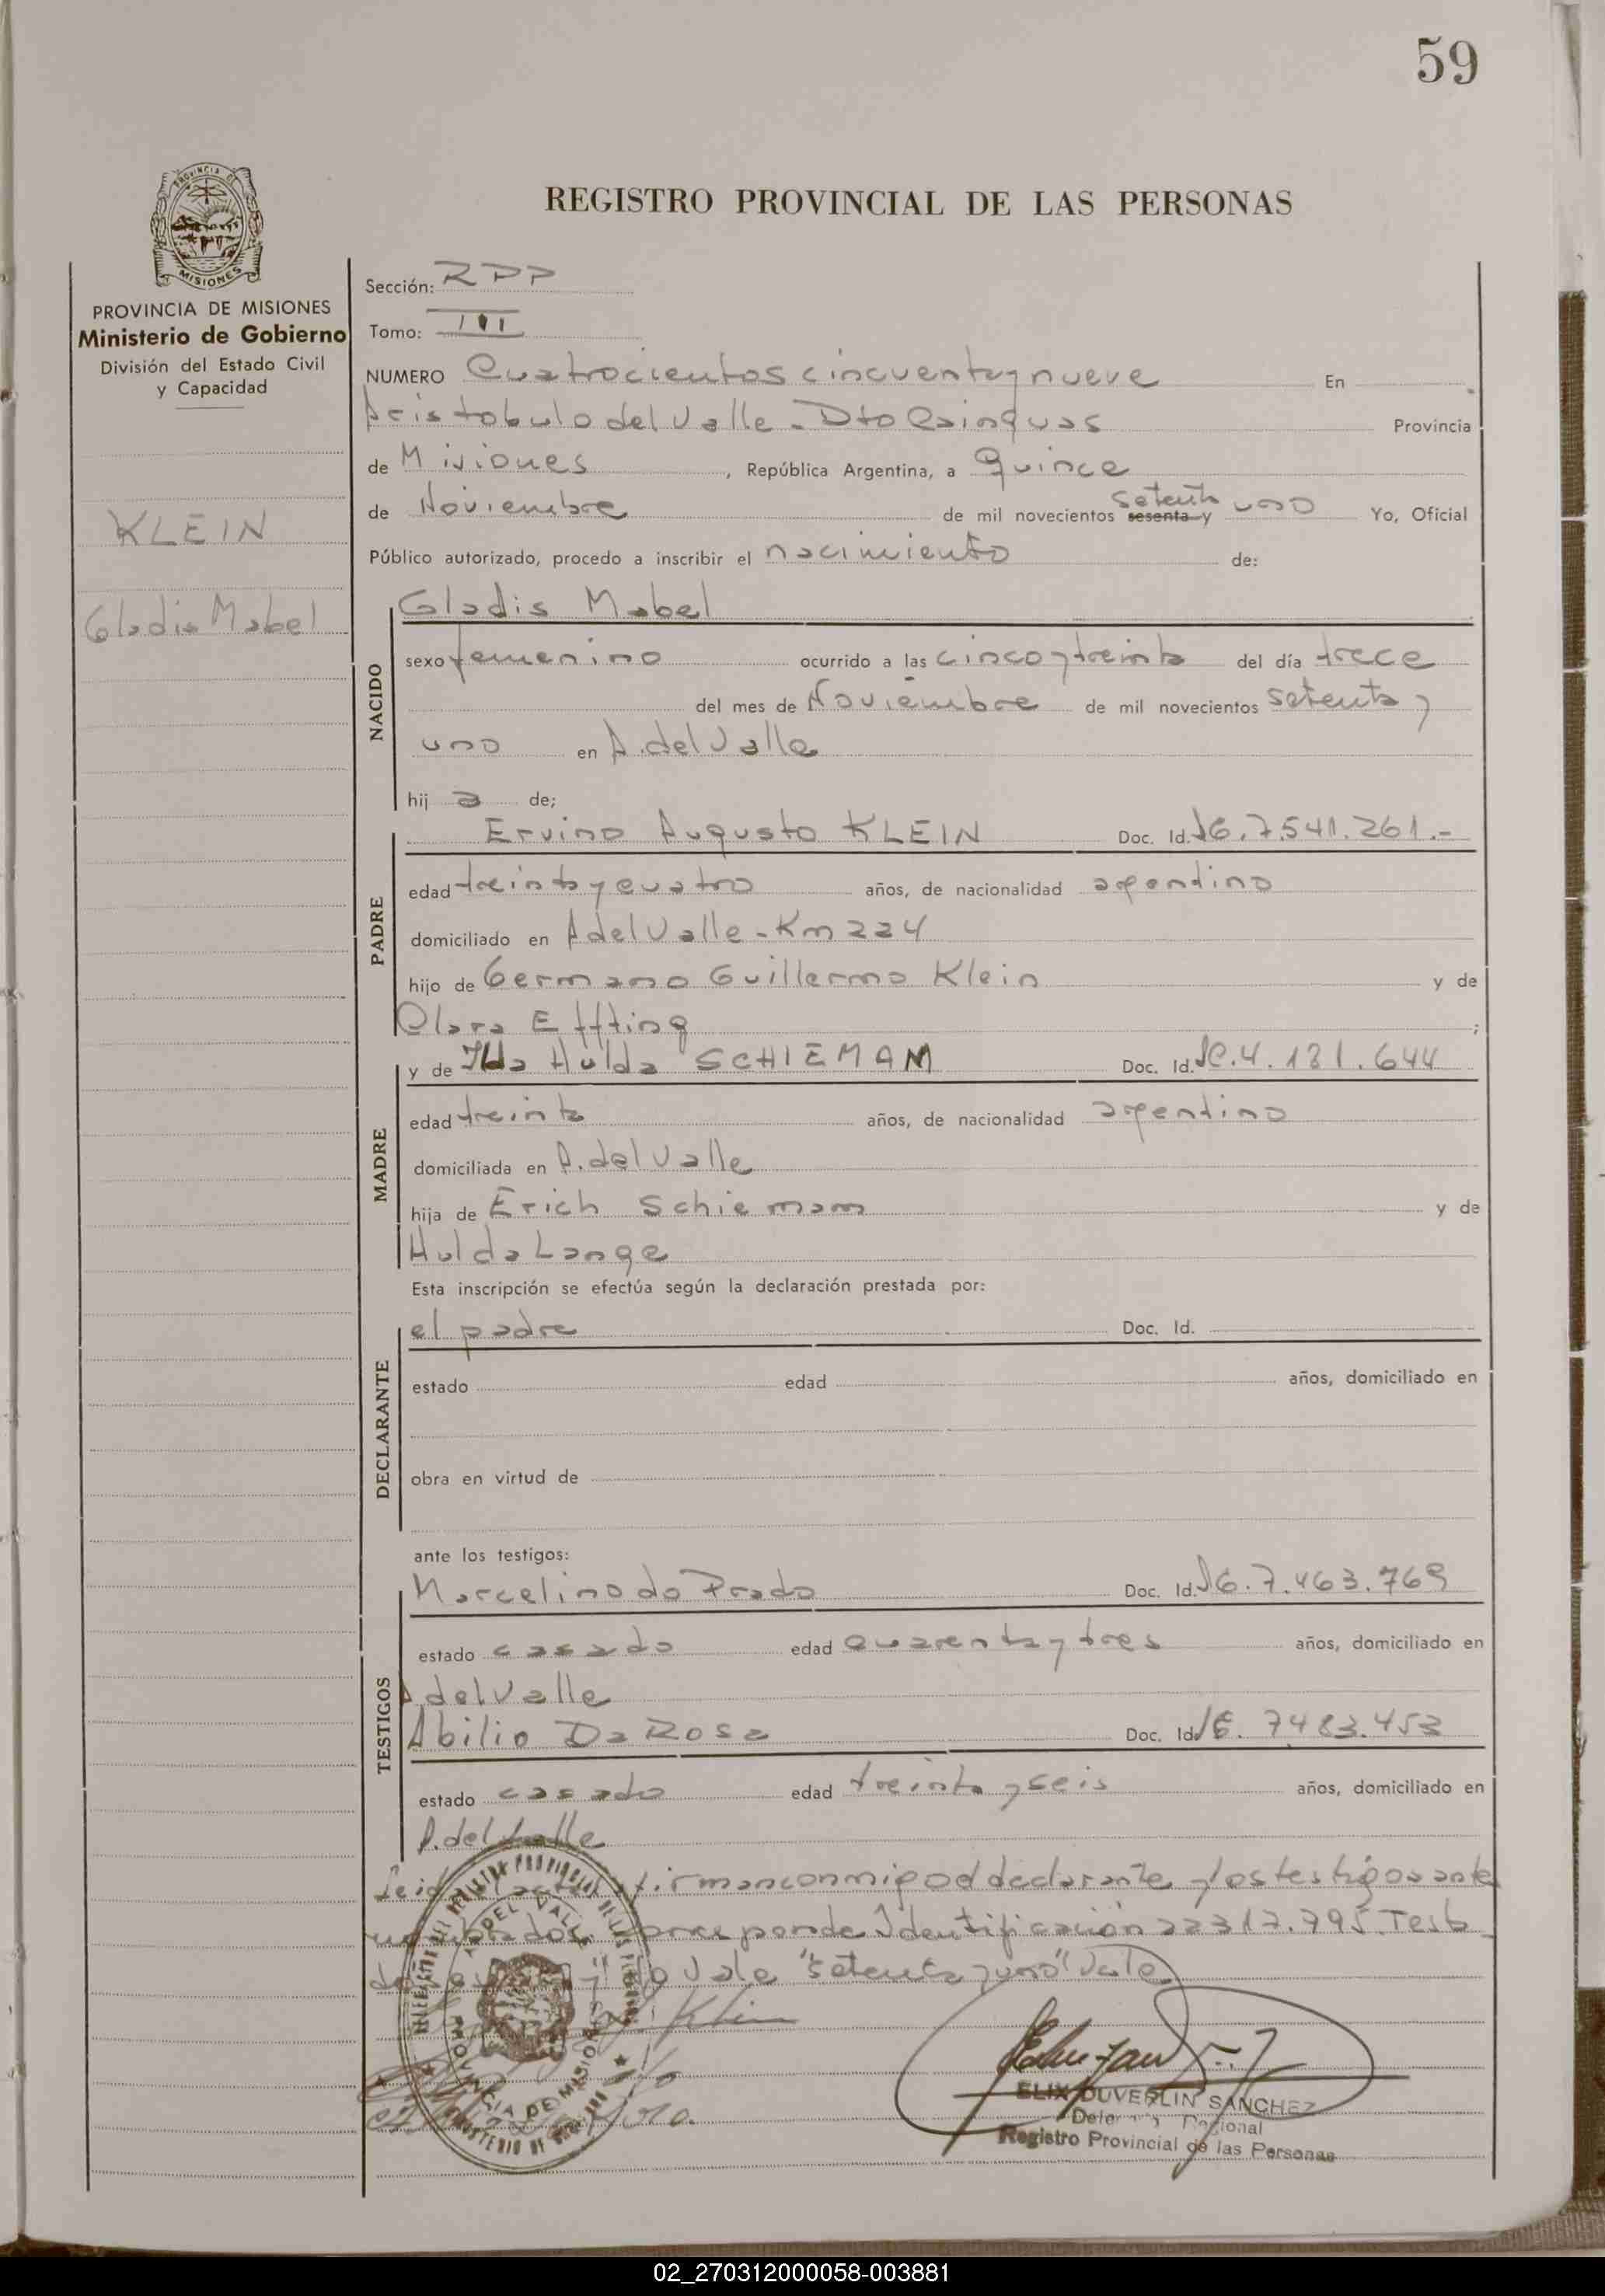 59
PROVINCIA DE
MISIONES
REGISTRO PROVINCIAL DE LAS PERSONAS
PROVINCIA DE MISIONES
Ministerio de Gobierno
División del Estado Civil
y Capacidad
KLEIN
Gladis Mabel
Sección: RPP
Tomo: III
NUMERO Cuatrocientos cincuenta y nueve En
Aristobulo del Valle - Dto Cainguas Provincia
de Misiones, República Argentina, a quince
de Noviembre de mil novecientos sesenta y setenta uno Yo, Oficial
Público autorizado, procedo a inscribir el nacimiento de:
NACIDO
Gladis Mabel
sexo femenino ocurrido a las cinco y treinta del día trece
del mes de Noviembre de mil novecientos setenta y
uno en A. del Valle
hij a de;
PADRE
Ervino Augusto KLEIN Doc. Id. 7.541.261.-
edad treinta y cuatro años, de nacionalidad argentino
domiciliado en A del Valle - Km 224
hijo de Germano Guillermo Klein y de
Clara Effting ;
MADRE
y de Ilda Hulda SCHIEMAM Doc. Id. 4.181.644
edad treinta años, de nacionalidad argentino
domiciliada en A. del Valle
hija de Erich Schiemam y de
Hulda Lange
Esta inscripción se efectúa según la declaración prestada por:
DECLARANTE
el padre Doc. Id.
estado edad años, domiciliado en
obra en virtud de
ante los testigos:
TESTIGOS
Marcelino do Prado Doc. Id. 7.463.769
estado casado edad cuarenta y tres años, domiciliado en
A. del Valle
Abilio Da Rosa Doc. Id. 7483.453
estado casado edad treinta y seis años, domiciliado en
A. del Valle
firman conmigo el declarante y los testigos ante
Corresponde Identificación 22317.795. Testa
no vale "setenta y uno" Vale
Klein
ELIX DUVERLIN SANCHEZ
Regional
Registro Provincial de las Personas
02_270312000058-003881